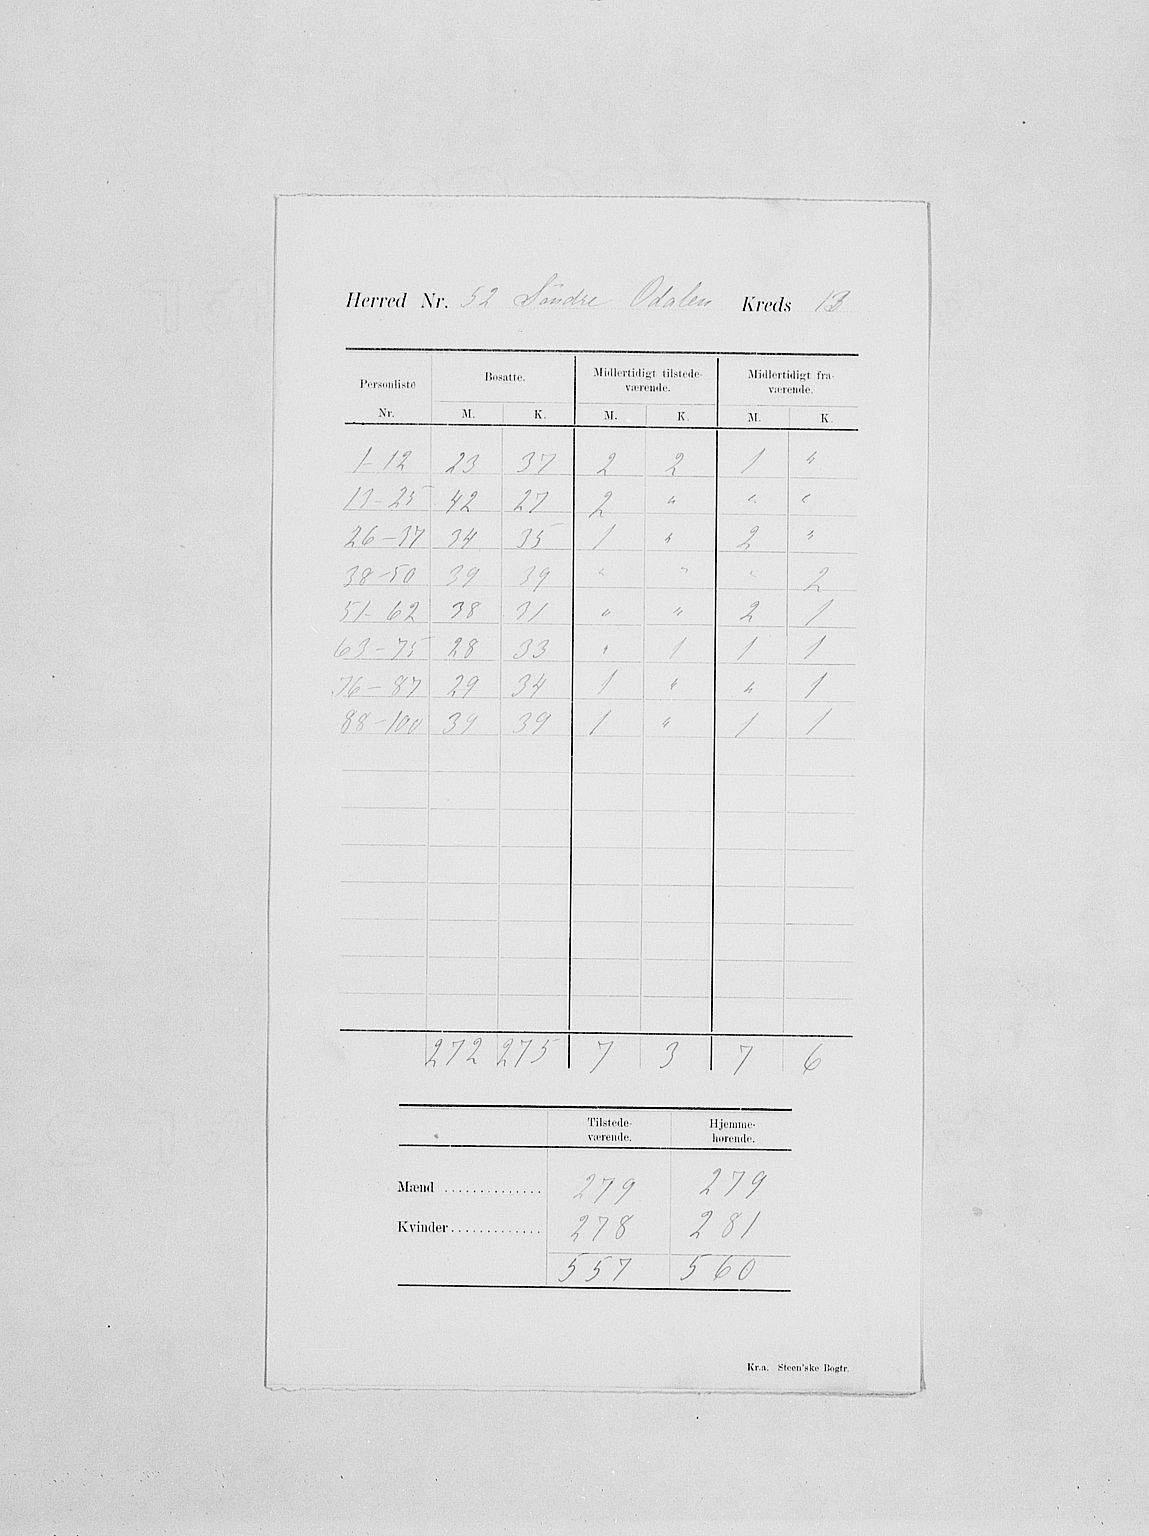 Herred Nr. 52 Söndre Odalen Kreds 13
Personliste Nr. Bosatte. Midlertidigt tilstedeværende. Midlertidigt fraværende.
M. K. M. K. M. K.
1-12 23 37 2 2 1 "
13-25 42 27 2 " " "
26-37 34 35 1 " 2 "
38-50 39 39 " " " 2
51-62 38 31 " " 2 1
63-75 28 33 " 1 1 1
76-87 29 34 1 " " 1
88-100 39 39 1 " 1 1
272 275 7 3 7 6
Tilstedeværende. Hjemmehørende.
Mænd .............. 279 279
Kvinder ............. 278 281
557 560
Kr.a. Steen'ske Bogtr.